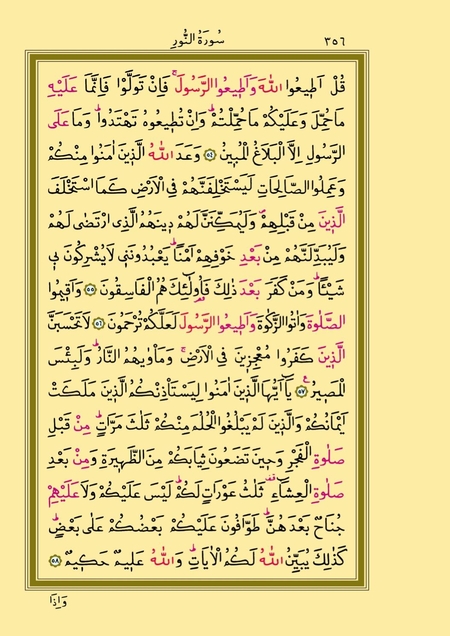 سُورَةُ النُّورِ ٣٥٦
قُلْ اَط۪يعُوا اللّٰهَ وَاَط۪يعُوا الرَّسُولَۚ فَاِنْ تَوَلَّوْا فَاِنَّمَا عَلَيْهِ
مَا حُمِّلَ وَعَلَيْكُمْ مَا حُمِّلْتُمْۜ وَاِنْ تُط۪يعُوهُ تَهْتَدُواۜ وَمَا عَلَى
الرَّسُولِ اِلَّا الْبَلَاغُ الْمُب۪ينُ ﴿٥٤﴾ وَعَدَ اللّٰهُ الَّذ۪ينَ اٰمَنُوا مِنْكُمْ
وَعَمِلُوا الصَّالِحَاتِ لَيَسْتَخْلِفَنَّهُمْ فِي الْاَرْضِ كَمَا اسْتَخْلَفَ
الَّذ۪ينَ مِنْ قَبْلِهِمْۖ وَلَيُمَكِّنَنَّ لَهُمْ د۪ينَهُمُ الَّذِي ارْتَضٰى لَهُمْ
وَلَيُبَدِّلَنَّهُمْ مِنْ بَعْدِ خَوْفِهِمْ اَمْنًاۜ يَعْبُدُونَن۪ي لَا يُشْرِكُونَ ب۪ي
شَيْـًٔاۜ وَمَنْ كَفَرَ بَعْدَ ذٰلِكَ فَاُو۬لٰٓئِكَ هُمُ الْفَاسِقُونَ ﴿٥٥﴾ وَاَق۪يمُوا
الصَّلٰوةَ وَاٰتُوا الزَّكٰوةَ وَاَط۪يعُوا الرَّسُولَ لَعَلَّكُمْ تُرْحَمُونَ ﴿٥٦﴾ لَا تَحْسَبَنَّ
الَّذ۪ينَ كَفَرُوا مُعْجِز۪ينَ فِي الْاَرْضِۚ وَمَأْوٰيهُمُ النَّارُۜ وَلَبِئْسَ
الْمَص۪يرُ۟ ﴿٥٧﴾ يَٓا اَيُّهَا الَّذ۪ينَ اٰمَنُوا لِيَسْتَأْذِنْكُمُ الَّذ۪ينَ مَلَكَتْ
اَيْمَانُكُمْ وَالَّذ۪ينَ لَمْ يَبْلُغُوا الْحُلُمَ مِنْكُمْ ثَلٰثَ مَرَّاتٍۜ مِنْ قَبْلِ
صَلٰوةِ الْفَجْرِ وَح۪ينَ تَضَعُونَ ثِيَابَكُمْ مِنَ الظَّه۪يرَةِ وَمِنْ بَعْدِ
صَلٰوةِ الْعِشَٓاءِ۠ ثَلٰثُ عَوْرَاتٍ لَكُمْۜ لَيْسَ عَلَيْكُمْ وَلَا عَلَيْهِمْ
جُنَاحٌ بَعْدَهُنَّۜ طَوَّافُونَ عَلَيْكُمْ بَعْضُكُمْ عَلٰى بَعْضٍۜ
كَذٰلِكَ يُبَيِّنُ اللّٰهُ لَكُمُ الْاٰيَاتِۜ وَاللّٰهُ عَل۪يمٌ حَك۪يمٌ ﴿٥٨﴾
وَاِذَا